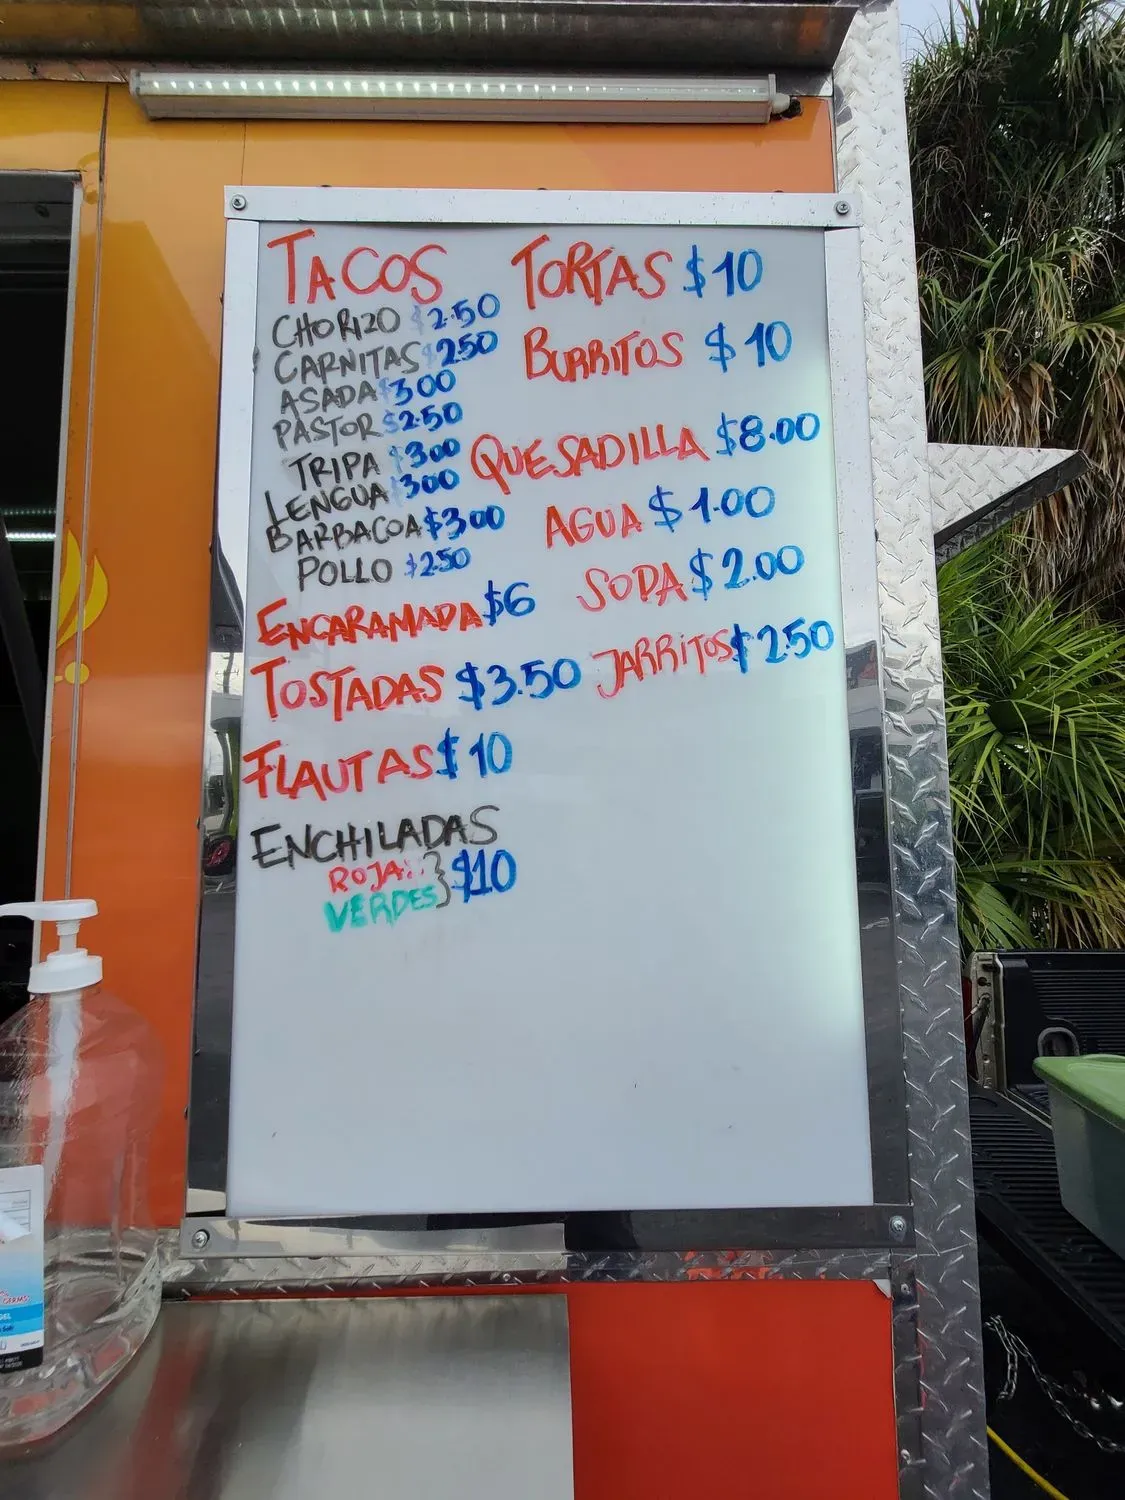 TACOS
CHORIZO $2.50
CARNITAS $2.50
ASADA $3.00
PASTOR $2.50
TRIPA $3.00
LENGUA $3.00
BARBACOA $3.00
POLLO $2.50
ENCARAMADA $6
TOSTADAS $3.50
FLAUTAS $10
ENCHILADAS
ROJAS
VERDES } $10
TORTAS $10
BURRITOS $10
QUESADILLA $8.00
AGUA $1.00
SODA $2.00
JARRITOS $2.50
GERMS
GEL